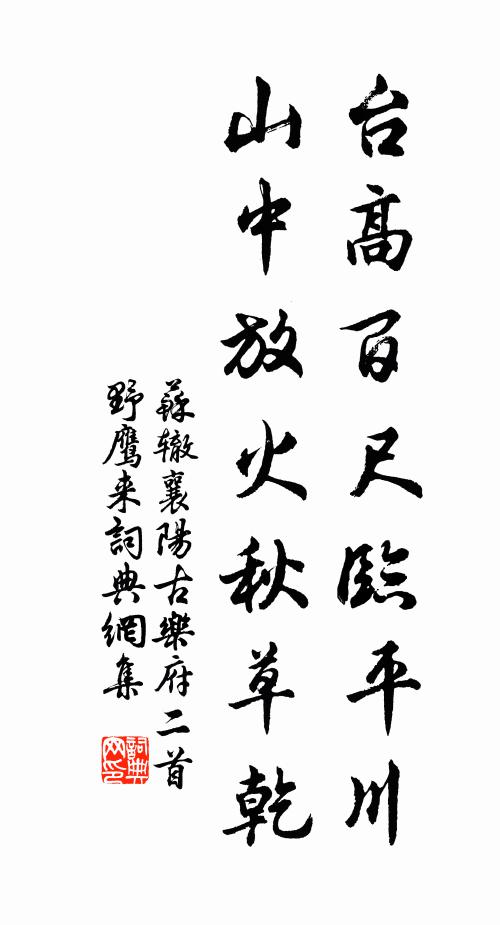 台高百尺臨平川
山中放火秋草乾
蘇辙襄陽古樂府二首
野鹰来詞典網集
詞典
网印